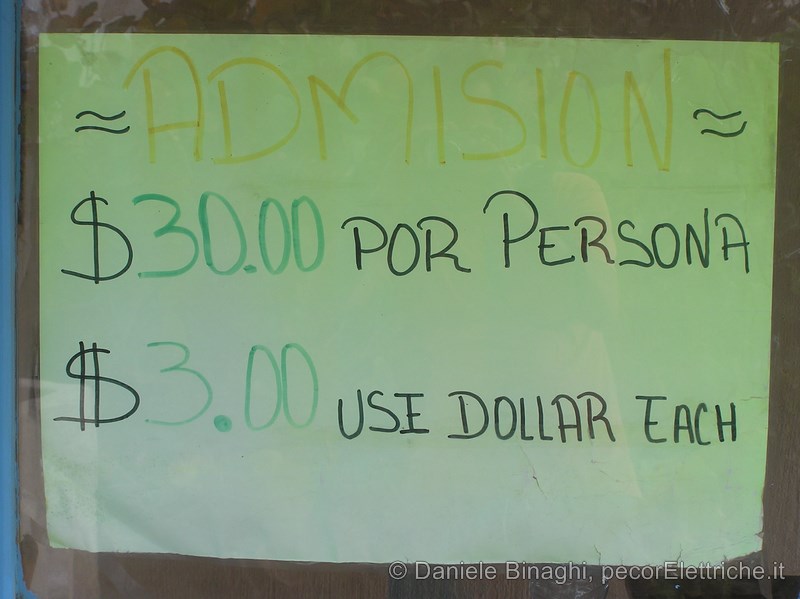 ≈ ADMISION ≈
$30.00 POR PERSONA
$3.00 USE DOLLAR EACH
© Daniele Binaghi, pecorElettriche.it